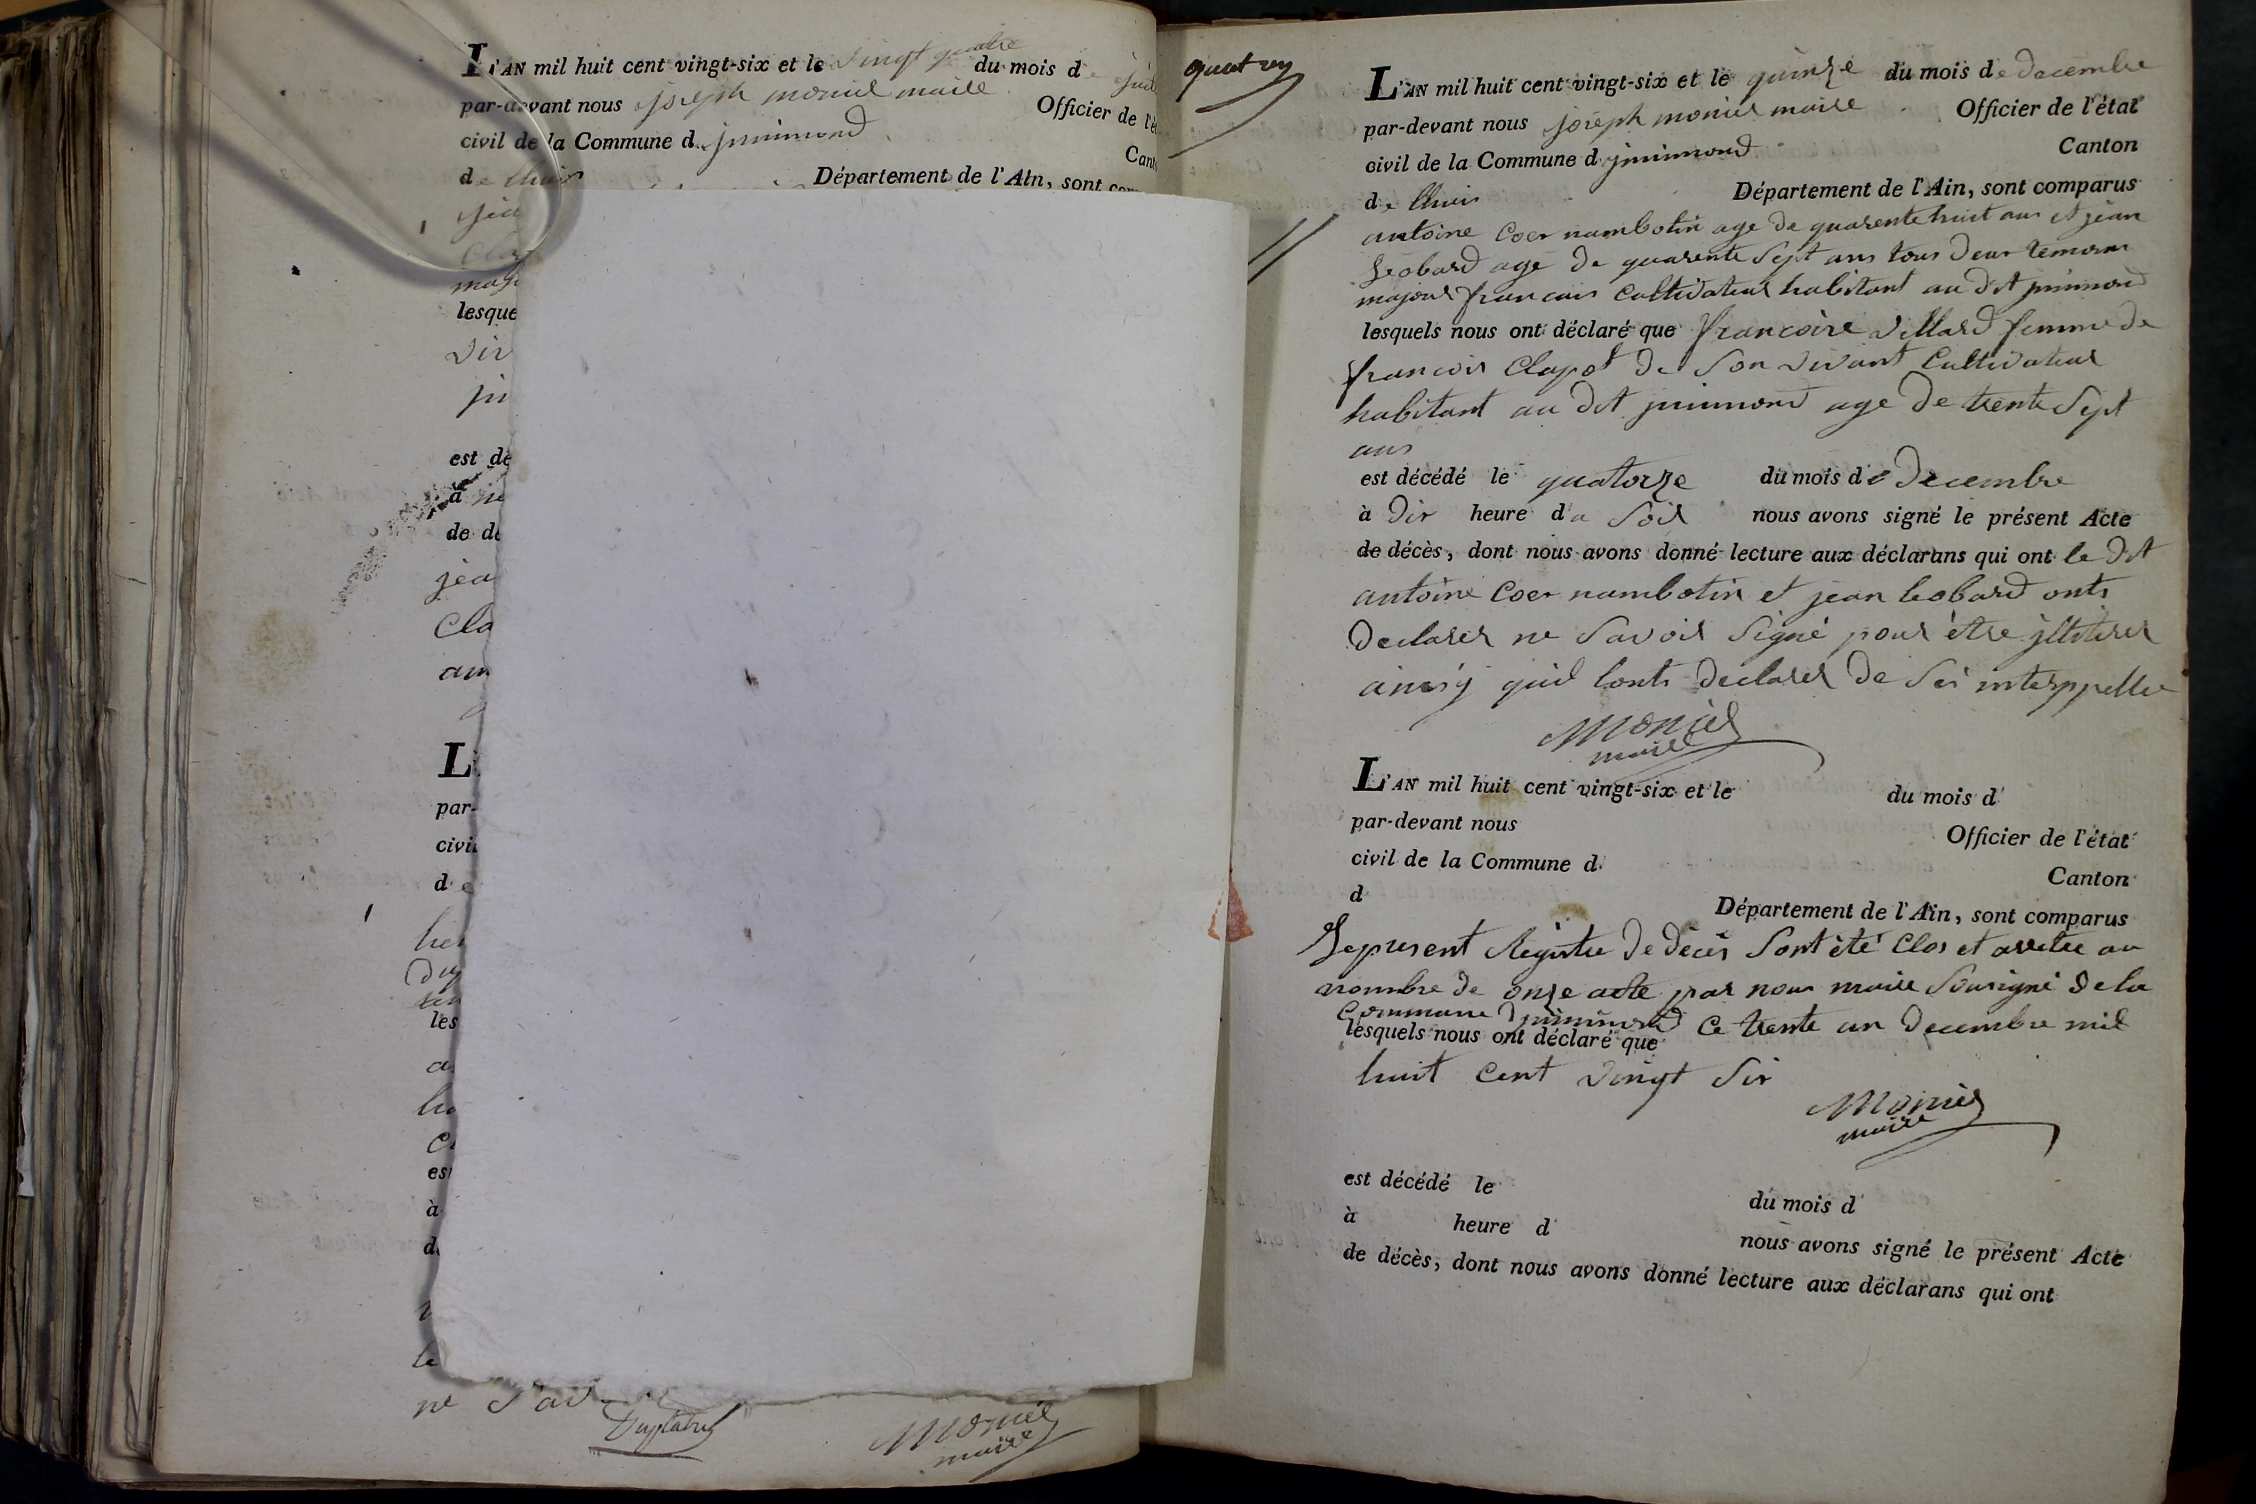 L'AN mil huit cent vingt-six et le vingt quatre du mois de
par-devant nous joseph monier maire Officier de l'é
civil de la Commune d jnnimond Cant
de lhuis Département de l'Ain, sont com
jea
Cla
maj
lesque
est dé
à
de dé
jea
Cla
L'
par-
civi
d e
les
es
à
d
ne Sav
Duplatre
Monier
maire
L'AN mil huit cent vingt-six et le quinze du mois de decembre
par-devant nous joseph monier maire Officier de l'état
civil de la Commune d jnnimond Canton
de lhuis Département de l'Ain, sont comparus
antoine Coer nambotin age de quarente huit ans et jean
Leobard age de quarente Sept ans tous deux temoins
majeurs francais Cultivateur habitant au dit jnnimond
lesquels nous ont déclaré que francoise villard femme de
francois Clapot de Son vivant Cultivateur
habitant au dit jnnimond age de trente Sept
ans
est décédé le quatorze du mois de Decembre
à dix heure du Soir nous avons signé le présent Acte
de décès, dont nous avons donné lecture aux déclarans qui ont le dit
antoine Coer nambotin et jean leobard onts
declarer ne Savoir Signé pour être jlltiter
ainsÿ quil lonts declarer de
Monier
maire
L'AN mil huit cent vingt-six et le du mois d
par-devant nous Officier de l'état
civil de la Commune d Canton
d Département de l'Ain, sont comparus
Le present Registre de décès Sont été Clos et arretee au
nombre de onze acte par nous maire Sousigné de la
Commune djnnimond
lesquels nous ont déclaré que Ce trente un decembre mil
huit Cent vingt Six
Monier
maire
est décédé le du mois d
à heure d nous avons signé le présent Acte
de décès, dont nous avons donné lecture aux déclarans qui ont